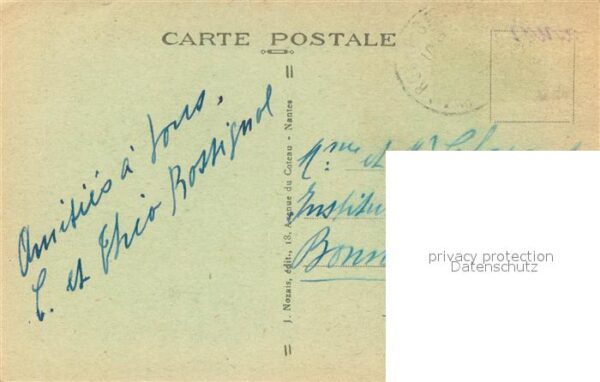 CARTE POSTALE
Amitiés à tous,
C. et Théo Rossignol
J. Nozais, édit., 18, Avenue du Coteau - Nantes
Mme et Mr
Institu
Bonn
privacy protection
Datenschutz